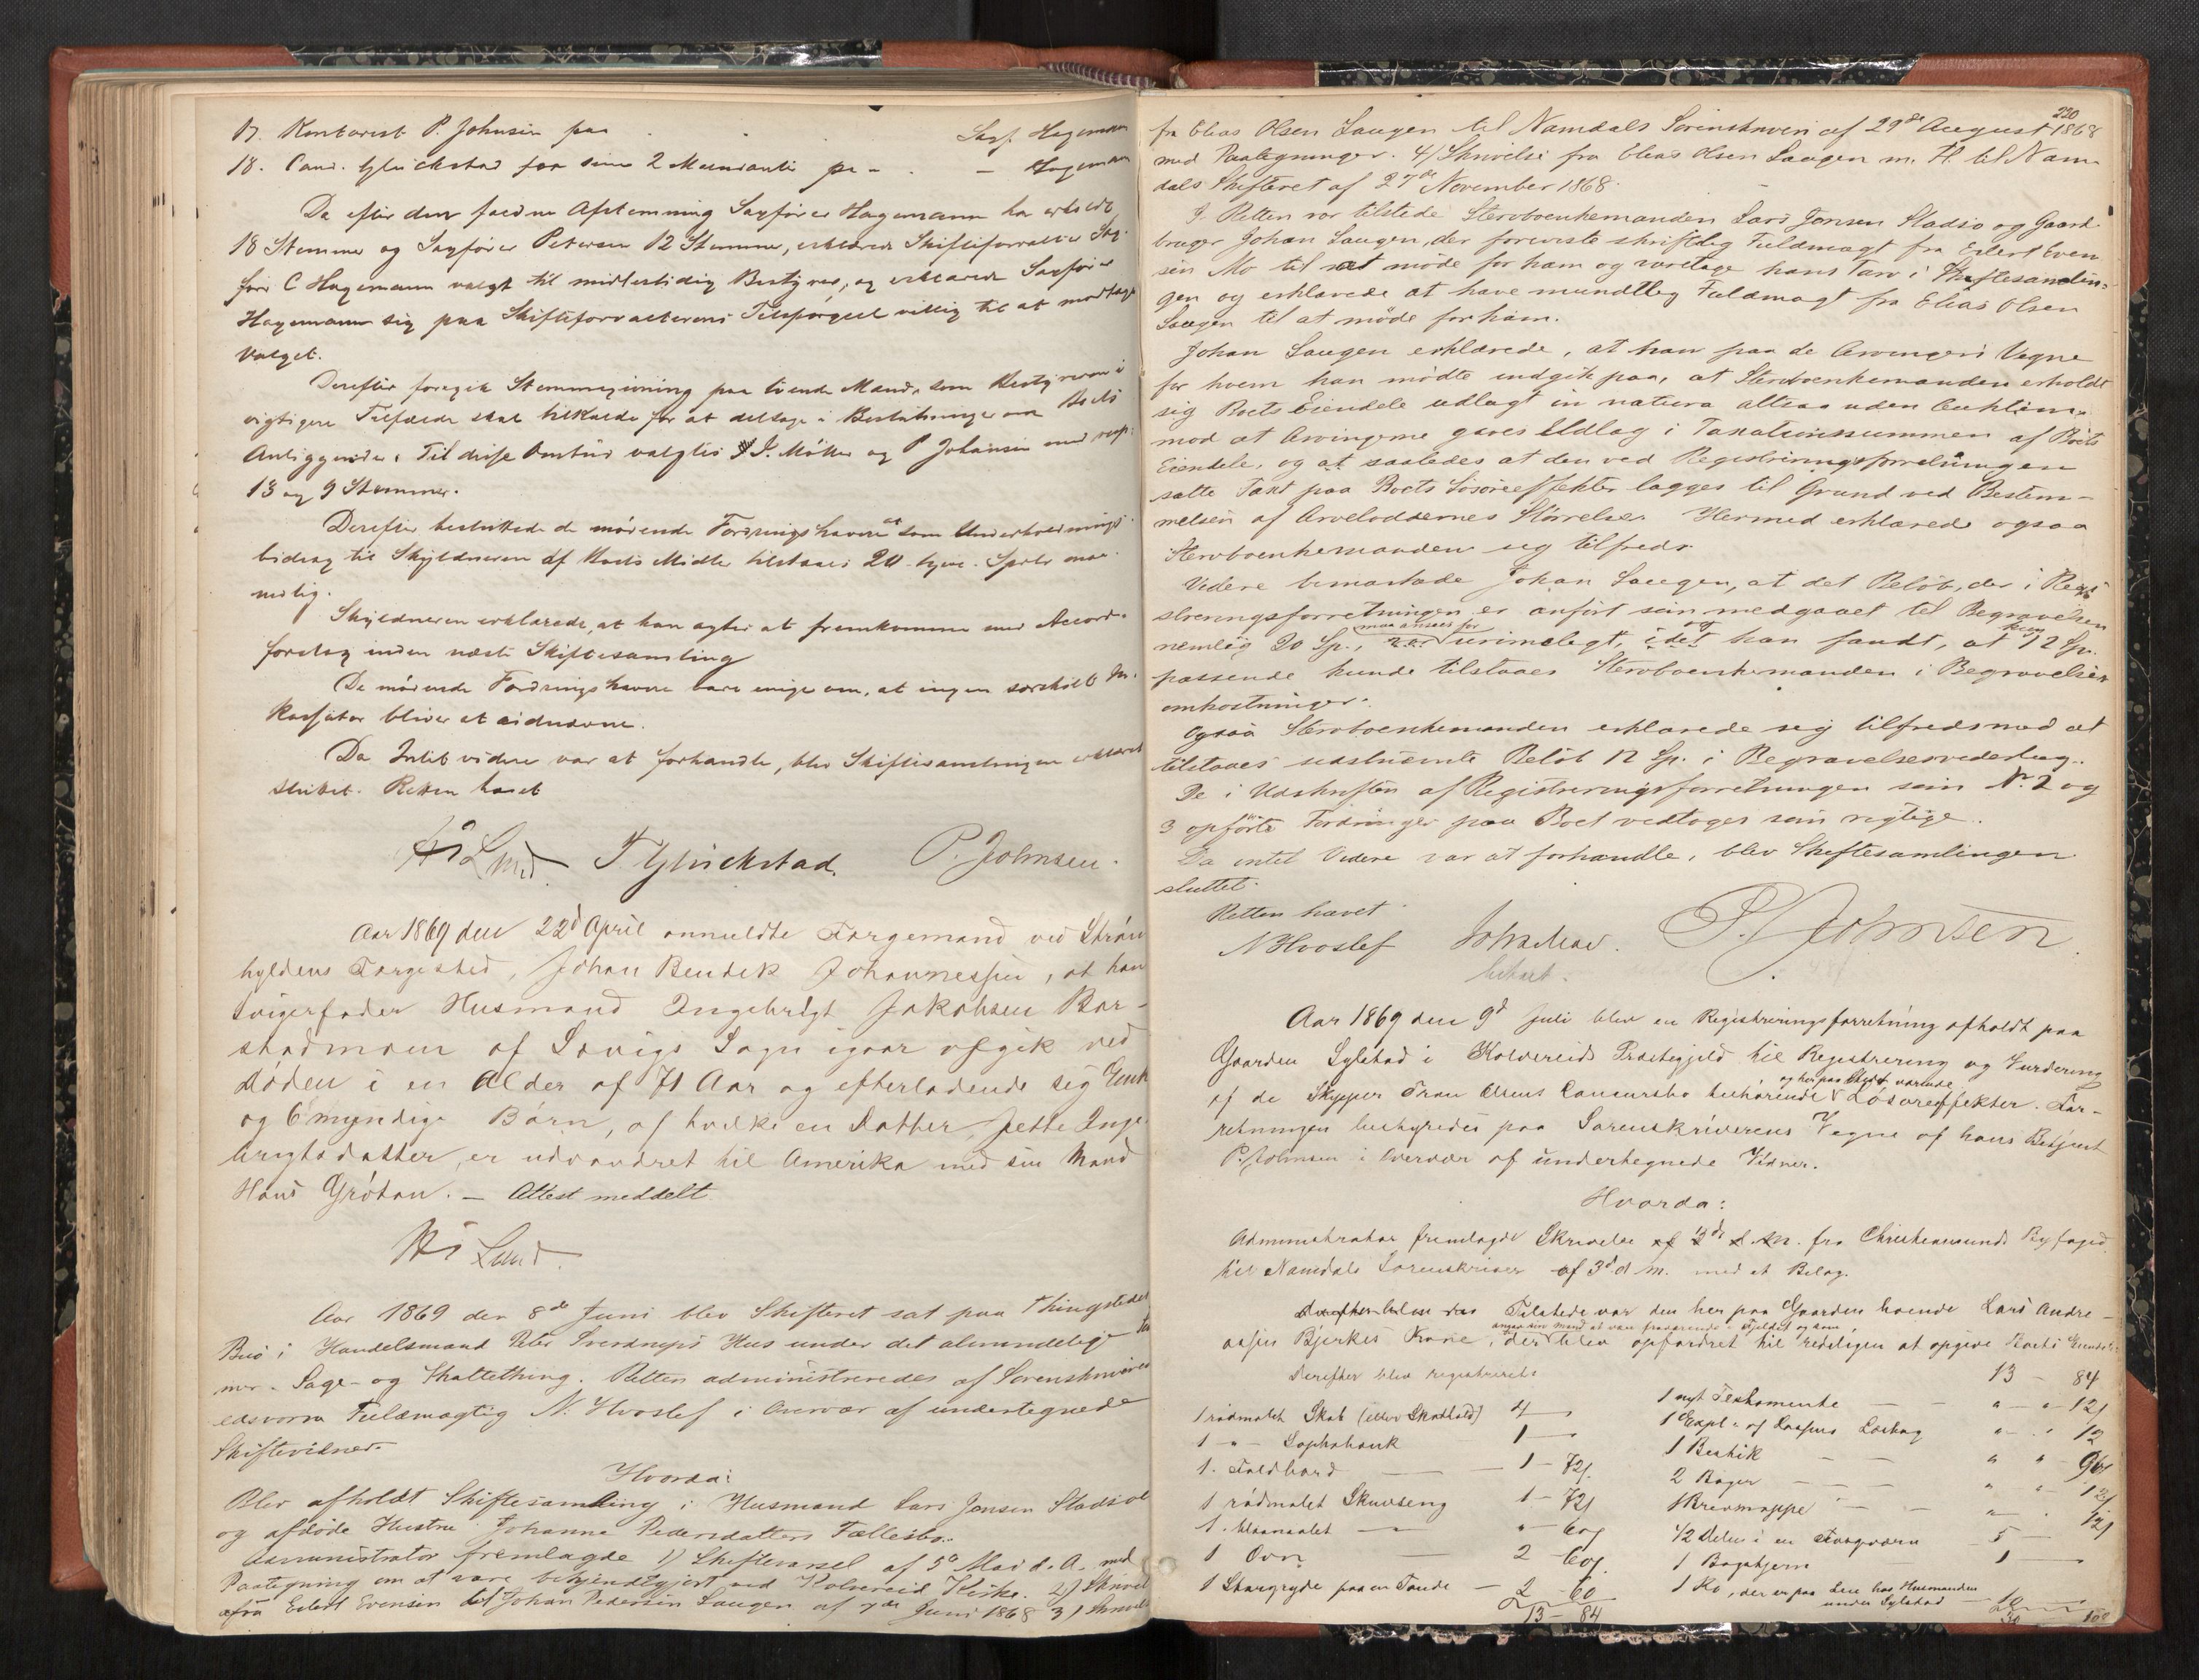 17. Kontorist P. Johnsen paa - - Sagf. Hagemann
18. Cand. Glückstad for sine 2 Mandanter paa - - Hagemann
Da efter den faldne Afstemning Sagfører Hagemann har erholdt
18 Stemmer og Sagfører Petersen 12 Stemmer, erklærede Skifteforvalter Sag-
fører C Hagemann valgt til midlertidig Bestyrer, og erklærede Sagfører
Hagemann sig paa Skifteforvalterens Tilspørgsel villig til at modtage
Valget.
Derefter foregik Stemmegivning paa tvende Mænd, som Bestyreren i
vigtigere Tilfælde skal tilkalde for at deltage i Beslutninger om Boets
Anliggender. Til disse Ombud valgtes J. Møller og P Johansen med resp:
13 og 9 Stemmer.
Derefter besluttede de mødende Fordringshavere at som Underholdnings-
bidrag til Skyldneren af Boets Midler tilstaaes 20 tyve Spdlr maa-
nedlig.
Skyldneren erklærede, at han agter at fremkomme med Accord-
forslag inden næste Skiftesamling
De mødende Fordringshavere vare enige om, at ingen særskilt In-
kassator bliver at
Da Intet videre var at forhandle, blev Skiftesamlingen erklæret
sluttet. Retten hævet
Lund T Glückstad. P. Johnsen.
Aar 1869 den 22d April anmeldte Færgemand ved Strøm-
hyldens Færgested, Johan Bendik Johannessen, at hans
Svigerfader Husmand Ingebrigt Jakobsen Bar-
stadmoen af Sævigs Sogn igaar afgik ved
døden i en Alder af 71 Aar og efterladende sig Enke
og 6 myndige Børn, af hvilke en Datter, Jette Inge-
brigtsdatter, er udvandret til Amerika med sin Mand
Hans Grøtan. — Attest meddelt
Lund.
Aar 1869 den 8de Juni blev Skifteret sat paa Thingstedet
Buø i Handelsmand Peter Sverdrups Hus under det almindelige Som-
mer- Sage- og Skattething. Retten administreredes af Sorenskriverens
edsvorne Fuldmægtig N. Hvoslef i Overvær af undertegnede
Skiftevidner.
Hvorda:
Blev afholdt Skiftesamling i Husmand Lars Jensen Stadsøe
og afdøde Hustru Johanne Pedersdatters Fællesbo.
Administrator fremlagde 1) Skiftevarsel af 5te Mai d. A. med
Paategning om at være bekjendtgjort ved Kolvereid Kirke. 2) Skrivelse
fra Edert Evensen til Johan Pedersen Saugen af 7de Juni 1868 3) Skrivelse
220
fra Elias Olsen Saugen til Namdals Sorenskriveri af 29de August 1868
med Paategninger. 4) Skrivelse fra Elias Olsen Saugen m. Fl. til Nam-
dals Skifteret af 27de November 1868.
I Retten var tilstede Stervboenkemanden Lars Jensen Stadsø og Gaard-
bruger Johan Saugen, der foreviste skriftlig Fuldmagt fra Edert Even-
sen Mo til at møde for ham og varetage hans Tarv i Skiftesamlin-
gen og erklærede at have mundtlig Fuldmagt fra Elias Olsen
Saugen til at møde for ham.
Johan Saugen erklærede, at han paa de Arvingers Vegne
for hvem han mødte indgik paa, at Stervboenkemanden erholdt
sig Boets Eiendele udlagt in natura altsaa uden Auktion
mod at Arvingerne gaves Udlæg i Taxationssummen af Boets
Eiendele, og at saaledes at den ved Registreringsforretningen
satte Taxt paa Boets Løsøreeffekter lægges til Grund ved Bestem-
melsen af Arveloddernes Størrelse. Hermed erklærede ogsaa
Stervboenkemanden sig tilfreds.
Videre bemærkede Johan Saugen, at det Beløb, der i Regi-
streringsforretningen er anført som medgaaet til Begravelsen
nemlig 20 Sp., maa ansees for urimeligt, og idet han fandt, at kun 12 Sp.
passende kunde tilstaaes Stervboenkemanden i Begravelses-
omkostninger.
Ogsaa Stervboenkemanden erklærede sig tilfreds med at
tilstaaes sidstnævnte Beløb 12 Sp. i Begravelsesvederlag.
De i Udskriften af Registreringsforretningen som No 2 og
3 opførte Fordringer paa Boet vedtoges som rigtige.
Da intet Videre var at forhandle, blev Skiftesamlingen
sluttet.
Retten hævet
N Hvoslef P. Johnsen.
Aar 1869 den 9d Juli blev en Registreringsforretning afholdt paa
Gaarden Sylstad i Kolvereids Præstegjeld til Registrering og Vurdering
af de Skipper Olsens Concursbo tilhørende og her paa Stedet værende Løsøreeffekter. For-
retningen bestyredes paa Sorenskriverens Vegne af hans Betjent
P. Johnsen i Overvær af undertegnede Vidner.
Hvorda:
Administrator fremlagde Skrivelse fra Christianssunds Byfoged
til Namdals Sorenskriver af 3d d. M. med et Bilag.
Tilstede var den her paa Gaarden boende Lars Andre-
assen Bjerkes Kone, angav sin Mand at være fraværende i Fjeldet og som der blev opfordret til redeligen at opgive Boets Eiendele
Derefter blev registreret:
1 rødmalet Skab (eller Skathold) 4 —
1 — Sophabænk 1 —
1. Foldbord — 1 - 72
1 rødmalet Skuvseng 1 - 72
1. blaamalet — " - 60
1 Ovn — 2 - 60
1 Støbgryde paa en Tønde — 2 - 60
13 - 84
13 - 84
1 nyt Testamente — " - 12
1 Expl. af Lovbog " - 12
1 Bestik — " - 96
2 Bøger — " - 12
1 Brevmappe — " - 12
1/2 Delen i en 5 —
1 Bogahjørn 1 —
1 Ko, der er paa Leie hos Husmanden
under Sylstad — 10